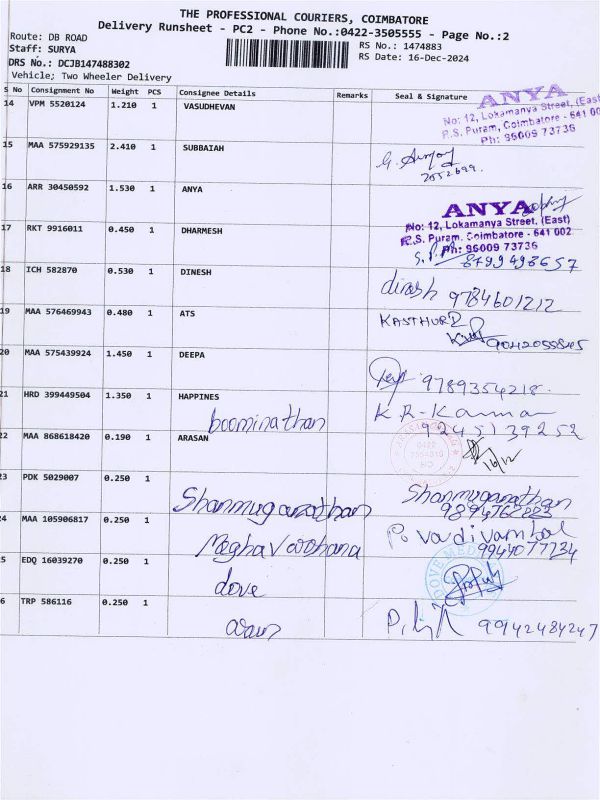 THE PROFESSIONAL COURIERS, COIMBATORE
Delivery Runsheet - PC2 - Phone No.:0422-3505555 - Page No.:2
Route: DB ROAD
RS No.: 1474883
Staff: SURYA
RS Date: 16-Dec-2024
DRS No.: DCJB147488302
Vehicle; Two Wheeler Delivery
S No Consignment No Weight PCS Consignee Details Remarks Seal & Signature
ANYA
No: 12, Lokamanya Street, (East)
R.S. Puram, Coimbatore - 641 002
Ph: 96009 73736
14 VPM 5520124 1.210 1 VASUDHEVAN
15 MAA 575929135 2.410 1 SUBBAIAH
16 ARR 30450592 1.530 1 ANYA
ANYA
No: 12, Lokamanya Street, (East)
R.S. Puram, Coimbatore - 641 002
Ph: 96009 73736
17 RKT 9916011 0.450 1 DHARMESH
8799498657
18 ICH 582870 0.530 1 DINESH
dinesh 9784601212
19 MAA 576469943 0.480 1 ATS
20 MAA 575439924 1.450 1 DEEPA
9789354218
21 HRD 399449504 1.350 1 HAPPINES
boominathan
K.R-Kannan
9245139252
22 MAA 868618420 0.190 1 ARASAN
16/12
23 PDK 5029007 0.250 1
Shanmuganathan
Shanmuganathan
24 MAA 105906817 0.250 1
Megha Vardhana
P. Vadivambal
9944077234
25 EDQ 16039270 0.250 1
dove
26 TRP 586116 0.250 1
99942484247